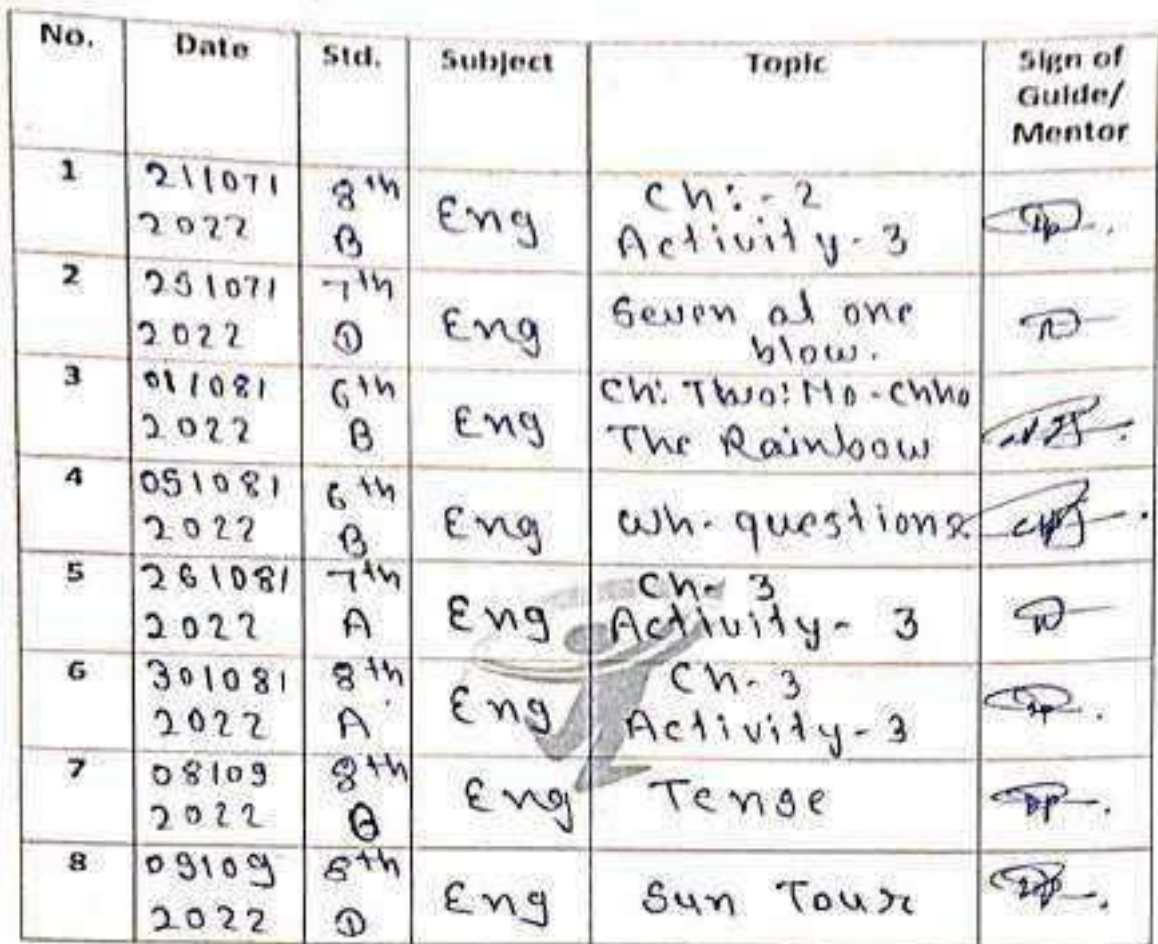 No. Date Std. Subject Topic Sign of Guide/ Mentor
1 21/07/ 2022 8th B Eng Ch:-2 Activity-3
2 25/07/ 2022 7th D Eng Seven at one blow.
3 01/08/ 2022 6th B Eng Ch: Two: Mo-Chho The Rainbow
4 05/08/ 2022 6th B Eng Wh-questions
5 26/08/ 2022 7th A Eng Ch-3 Activity-3
6 30/08/ 2022 8th A Eng Ch-3 Activity-3
7 08/09 2022 8th B Eng Tense
8 09/09 2022 8th D Eng Sun Tour